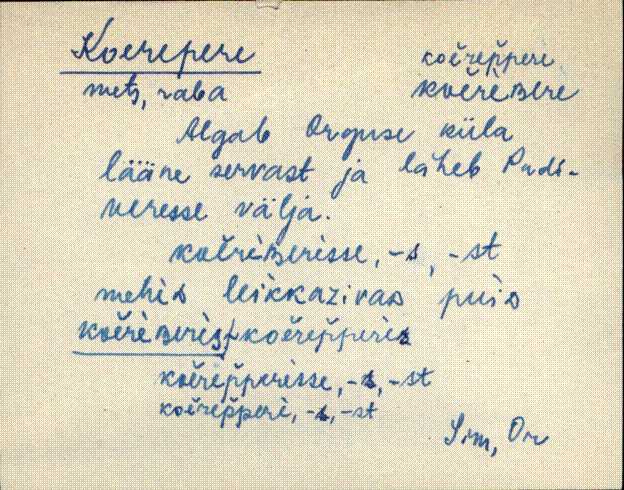 Koerepere koĕrep̆pere
mets, raba koĕrèʙere
Algab Orguse küla
lääne servast ja läheb Pudi-
veresse välja.
koĕrèʙerìsse, -s, -st
mehis leikkazivas puis
koĕrèʙerìs/koĕrep̆perìs
koĕrep̆perìsse, -s, -st
koĕrep̆perì, -s, -st
Sim, Or